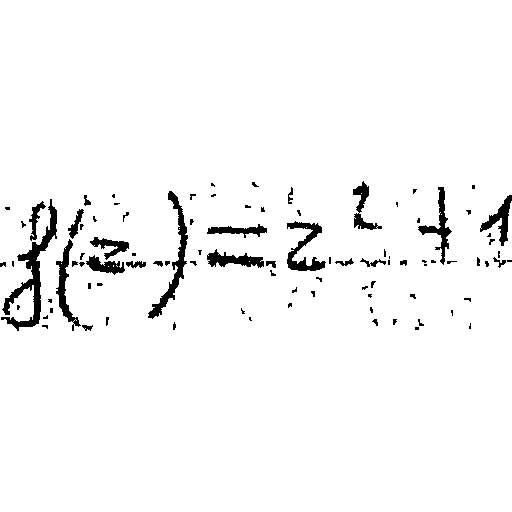 f(z) = z² + 1